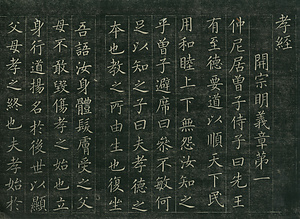 孝經
開宗明義章第一
仲尼居曾子侍子曰先王
有至德要道以順天下民
用和睦上下無怨汝知之
乎曾子避席曰參不敏何
足以知之子曰夫孝德之
本也教之所由生也復坐
吾語汝身體髮膚受之父
母不敢毀傷孝之始也立
身行道揚名於後世以顯
父母孝之終也夫孝始於